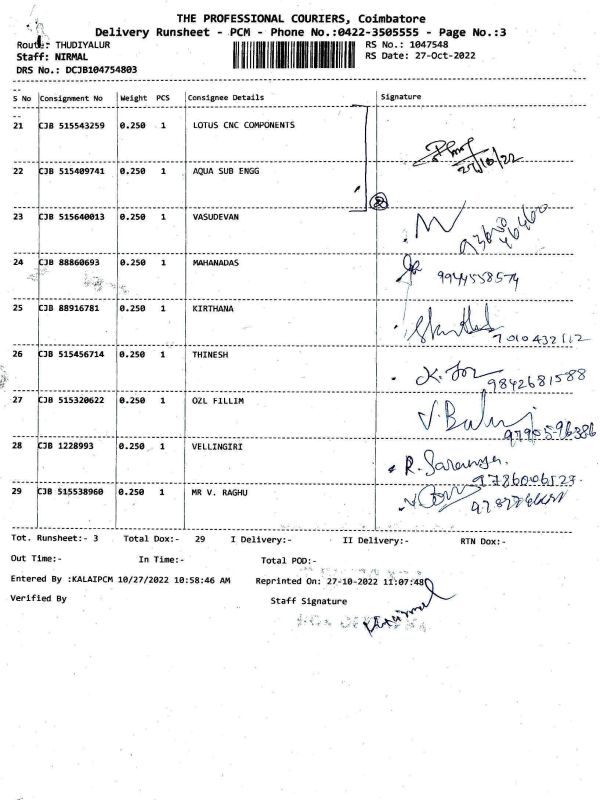 THE PROFESSIONAL COURIERS, Coimbatore
Delivery Runsheet - PCM - Phone No.:0422-3505555 - Page No.:3
Route:- THUDIYALUR RS No.: 1047548
Staff: NIRMAL RS Date: 27-Oct-2022
DRS No.: DCJB104754803
S No Consignment No Weight PCS Consignee Details Signature
21 CJB 515543259 0.250 1 LOTUS CNC COMPONENTS
27/10/22
22 CJB 515409741 0.250 1 AQUA SUB ENGG
23 CJB 515640013 0.250 1 VASUDEVAN
24 CJB 88860693 0.250 1 MAHANADAS
9944558574
25 CJB 88916781 0.250 1 KIRTHANA
7010432112
26 CJB 515456714 0.250 1 THINESH
9842681588
27 CJB 515320622 0.250 1 OZL FILLIM
9790596386
28 CJB 1228993 0.250 1 VELLINGIRI
R. Saranya.
29 CJB 515538960 0.250 1 MR V. RAGHU
Tot. Runsheet:- 3 Total Dox:- 29 I Delivery:- II Delivery:- RTN Dox:-
Out Time:- In Time:- Total POD:-
Entered By :KALAIPCM 10/27/2022 10:58:46 AM Reprinted On: 27-10-2022 11:07:48
Verified By Staff Signature